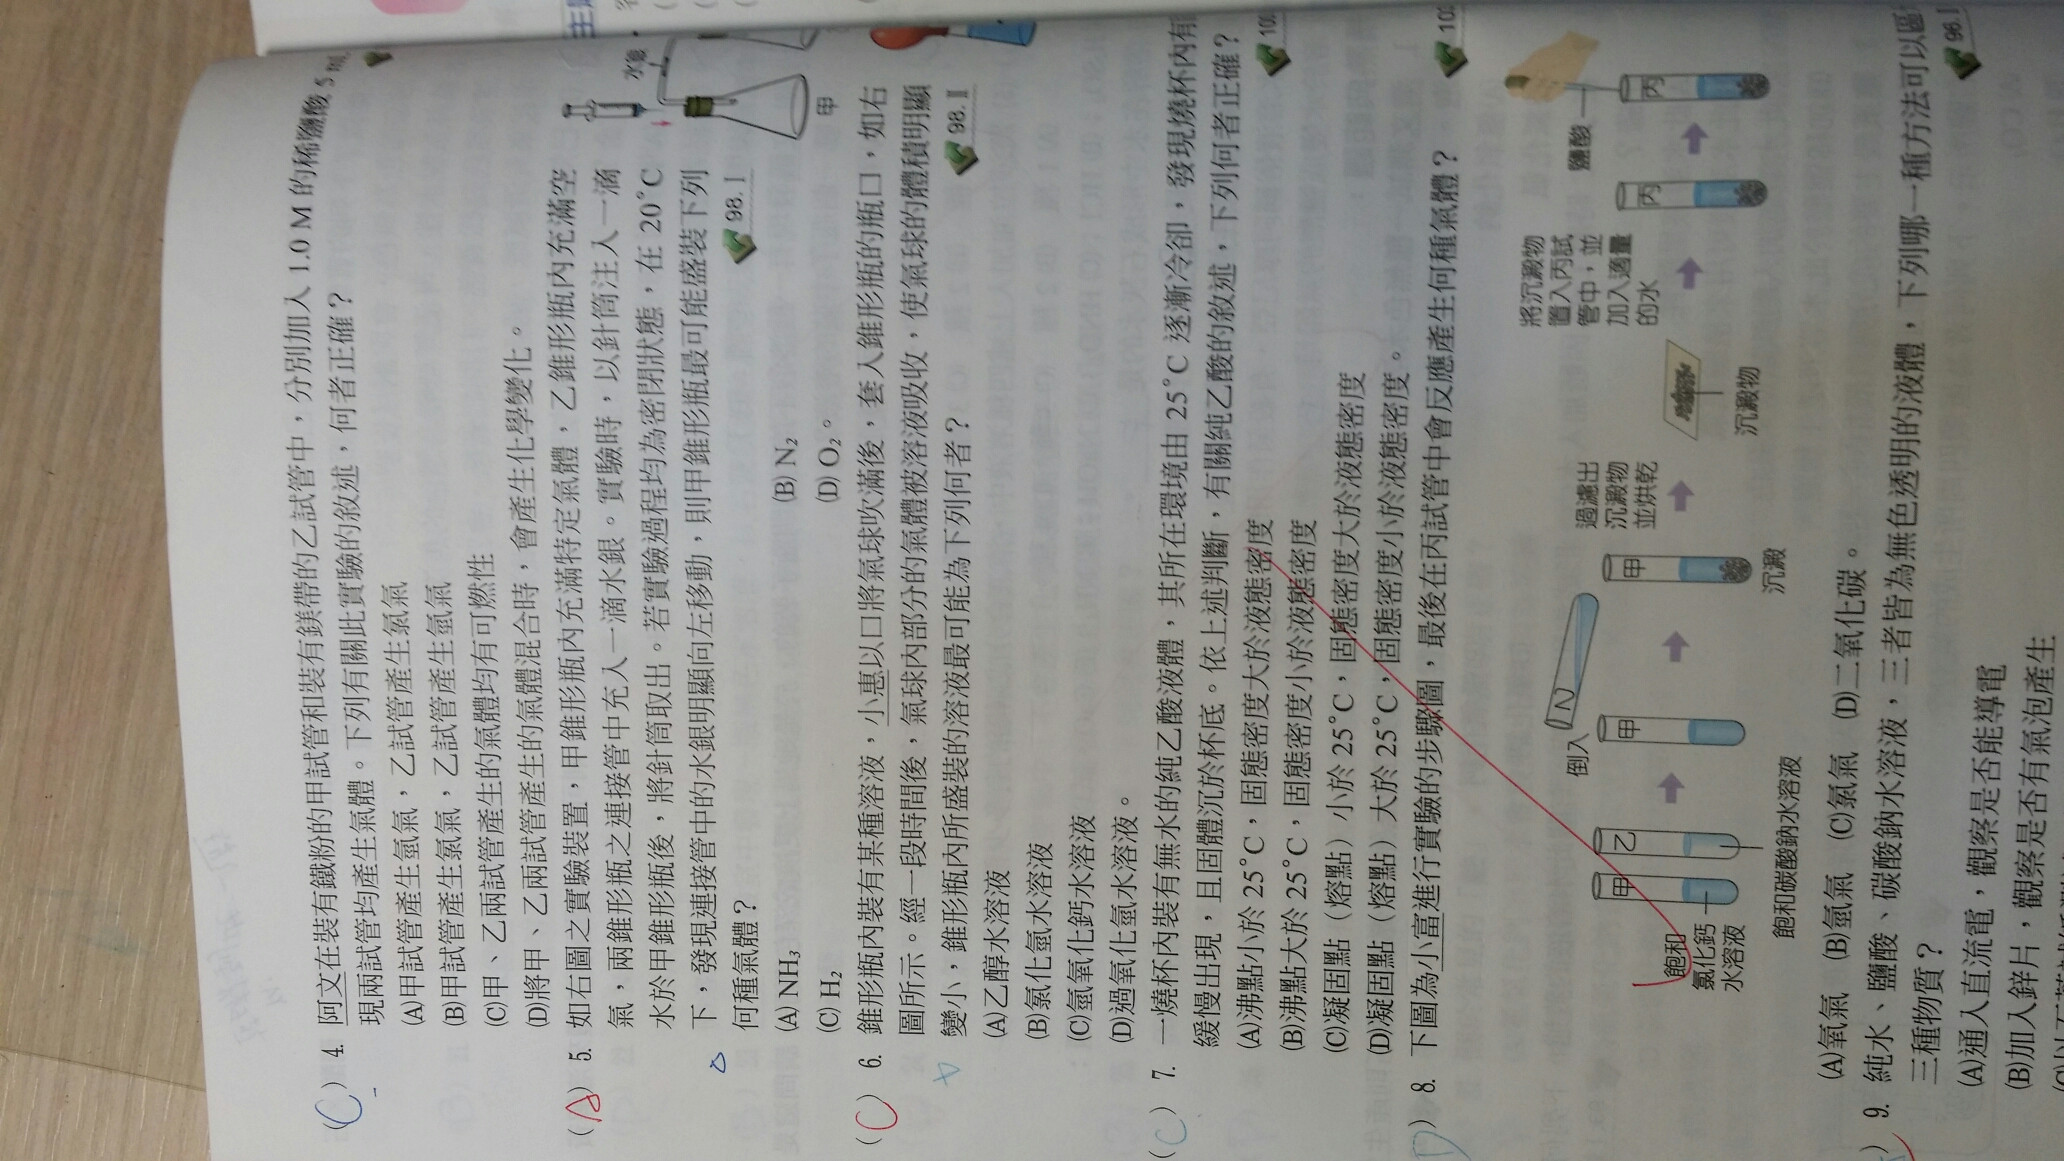 (C) 4. 阿文在裝有鐵粉的甲試管和裝有鎂帶的乙試管中，分別加入 1.0 M 的稀鹽酸 5
現兩試管均產生氣體。下列有關此實驗的敘述，何者正確？
(A)甲試管產生氫氣，乙試管產生氯氣
(B)甲試管產生氯氣，乙試管產生氫氣
(C)甲、乙兩試管產生的氣體均有可燃性
(D)將甲、乙兩試管產生的氣體混合時，會產生化學變化。
(A) 5. 如右圖之實驗裝置，甲錐形瓶內充滿特定氣體，乙錐形瓶內充滿空
氣，兩錐形瓶之連接管中充入一滴水銀。實驗時，以針筒注入一滴
水於甲錐形瓶後，將針筒取出。若實驗過程均為密閉狀態，在 20°C
下，發現連接管中的水銀明顯向左移動，則甲錐形瓶最可能盛裝下列
何種氣體？
98.I
(A) NH₃
(B) N₂
(C) H₂
(D) O₂。
水銀
甲
(C) 6. 錐形瓶內裝有某種溶液，小惠以口將氣球吹滿後，套入錐形瓶的瓶口，如右
圖所示。經一段時間後，氣球內部分的氣體被溶液吸收，使氣球的體積明顯
變小，錐形瓶內所盛裝的溶液最可能為下列何者？
98.II
(A)乙醇水溶液
(B)氯化氫水溶液
(C)氫氧化鈣水溶液
(D)過氧化氫水溶液。
(C) 7. 一燒杯內裝有無水的純乙酸液體，其所在環境由 25°C 逐漸冷卻，發現燒杯內有
緩慢出現，且固體沉於杯底。依上述判斷，有關純乙酸的敘述，下列何者正確？
(A)沸點小於 25°C，固態密度大於液態密度
(B)沸點大於 25°C，固態密度小於液態密度
(C)凝固點（熔點）小於 25°C，固態密度大於液態密度
(D)凝固點（熔點）大於 25°C，固態密度小於液態密度。
(D) 8. 下圖為小富進行實驗的步驟圖，最後在丙試管中會反應產生何種氣體？
甲
乙
飽和
氯化鈣
水溶液
飽和碳酸鈉水溶液
倒入
甲
乙
甲
沉澱
過濾出
沉澱物
並烘乾
沉澱物
將沉澱物
置入丙試
管中，並
加入適量
的水
丙
鹽酸
丙
(A)氧氣 (B)氫氣 (C)氯氣 (D)二氧化碳。
) 9. 純水、鹽酸、碳酸鈉水溶液，三者皆為無色透明的液體，下列哪一種方法可以區
三種物質？
96.I
(A)通入直流電，觀察是否能導電
(B)加入鋅片，觀察是否有氣泡產生